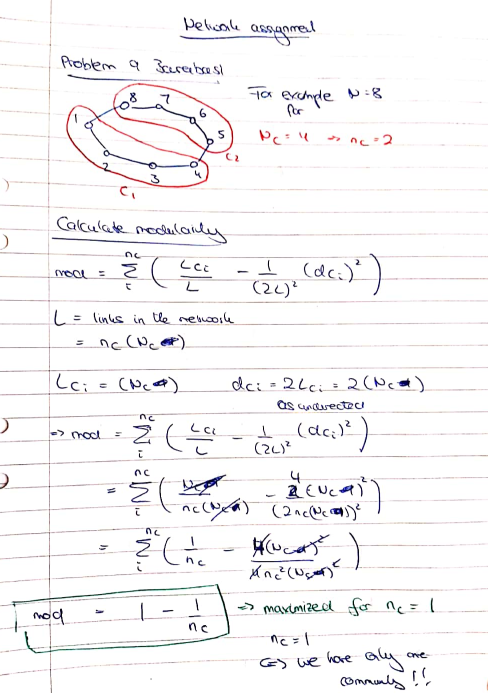 Network assignment
Problem 9 Barabasi
For example N=8
for
Nc = 4 ⇒ nc = 2
8 7 6 5 1 2 3 4
C2
C1
Calculate modularity
mod = Σ_i^{nc} ( L_{ci}/L - 1/(2L)^2 (d_{ci})^2 )
L = links in the network
= nc (Nc)
L_{ci} = (Nc) d_{ci} = 2L_{ci} = 2(Nc)
as undirected
⇒ mod = Σ_i^{nc} ( L_{ci}/L - 1/(2L)^2 (d_{ci})^2 )
= Σ_i^{nc} ( Nc/nc(Nc) - 4(Nc)^2/(2nc(Nc))^2 )
= Σ_i^{nc} ( 1/nc - 4(Nc)^2/4nc^2(Nc)^2 )
mod = 1 - 1/nc ⇒ maximized for nc = 1
nc = 1
⇔ we have only one
community !!